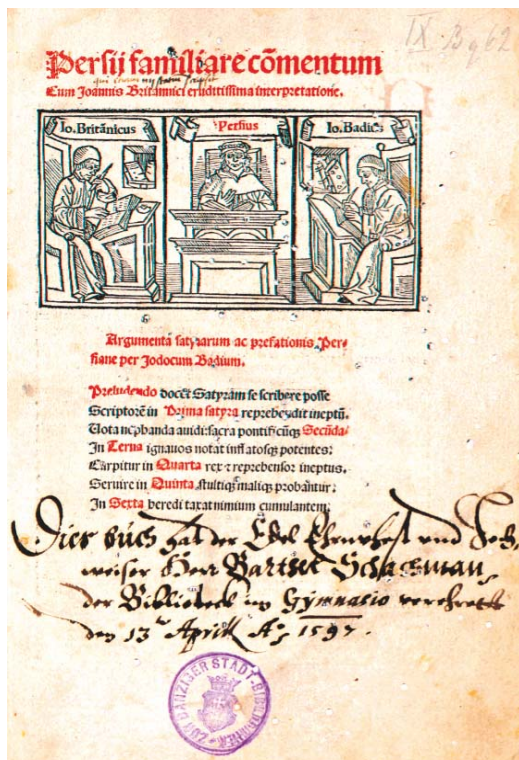 IX B q 62
Persij familiare cõmentum
Cum Joannis Britannici eruditissima interpretatione.
Io. Britãnicus
Persius
Io. Badiꝰ
Argumenta satyrarum ac prefationis Per-
siane per Jodocum Badium.
Preludendo docet Satyram se scribere posse
Scriptorē in Prima satyra reprehendit ineptũ.
Uota nephanda auidi: sacra pontificũqꝫ Secũda/
In Terna ignauos notat inflatosqꝫ potentes:
Carpitur in Quarta rex ⁊ reprehensor ineptus.
Seruire in Quinta stultiqꝫ maliqꝫ probantur:
In Sexta heredi taxat nimium cumulantem:
Dies buch hat der Edel Ehrnvhest und Hoch,
weiser Herr Bartsel Schachman,
der Bibliotheck im Gymnasio verehrett
den 13 Aprill Aō 1597.
ZUR DANZIGER STADT-BIBLIOTHEK